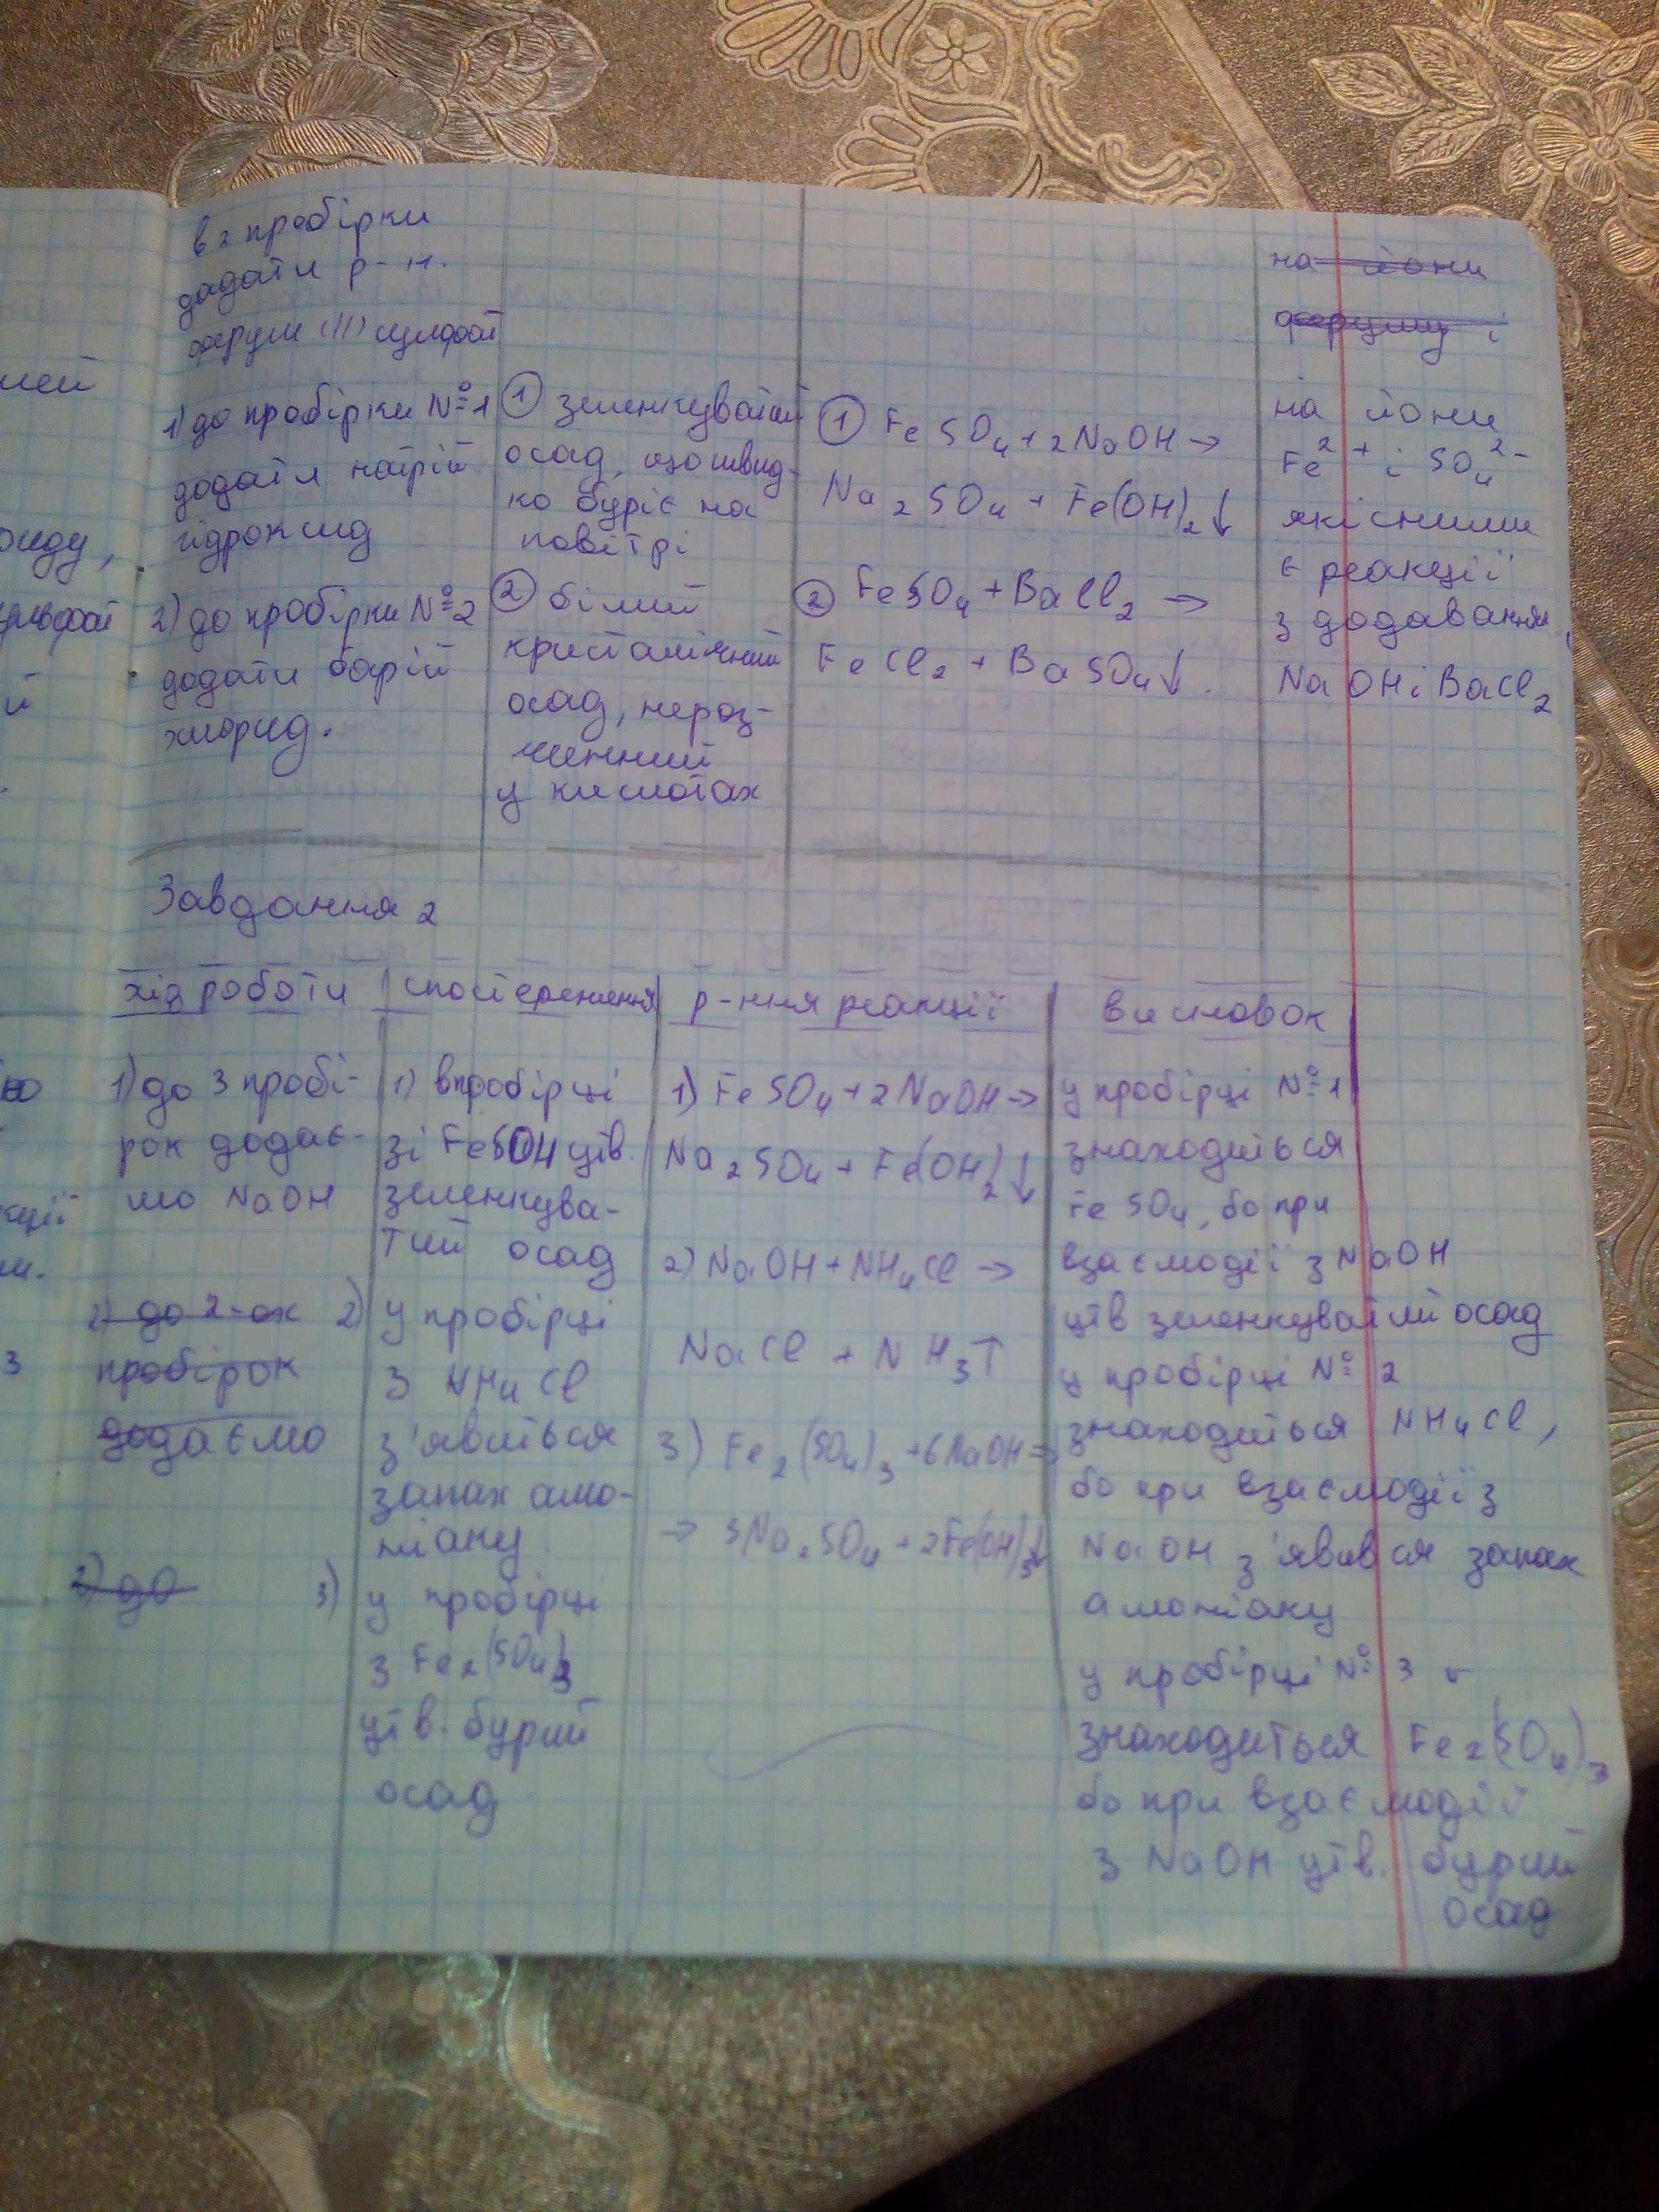 в 2 пробірки
додати р-н.
ферум (II) сульфат
1) до пробірки №1
додати натрій
гідроксид
2) до пробірки №2
додати барій
хлорид.
① зеленкуватий
осад, що швид-
ко буріє на
повітрі
② білий
кристалічний
осад, нероз-
чинний
у кислотах
① FeSO₄ + 2NaOH →
Na₂SO₄ + Fe(OH)₂↓
② FeSO₄ + BaCl₂ →
FeCl₂ + BaSO₄↓.
на йони
феруму і
на йони
Fe²⁺ і SO₄²⁻
якісними
є реакції
з додавання
NaOH і BaCl₂
Завдання 2
хід роботи
1) до 3 пробі-
рок додає-
мо NaOH
2) до 2-ох
пробірок
додаємо
2) до
спостереження
1) в пробірці
зі FeSO4 утв.
зеленкува-
тий осад
2) у пробірці
з NH₄Cl
з'явиться
запах амо-
ніаку.
3) у пробірці
з Fe₂(SO₄)₃
утв. бурий
осад
р-ння реакції
1) FeSO₄ + 2NaOH →
Na₂SO₄ + Fe(OH)₂↓
2) NaOH + NH₄Cl →
NaCl + NH₃↑
3) Fe₂(SO₄)₃ + 6NaOH →
→ 3Na₂SO₄ + 2Fe(OH)₃↓
висновок
у пробірці №1
знаходиться
FeSO₄, бо при
взаємодії з NaOH
утв зеленкуватий осад
у пробірці № 2
знаходиться NH₄Cl,
бо при взаємодії з
NaOH з'явився запах
амоніаку
у пробірці № 3
знаходиться Fe₂(SO₄)₃
бо при взаємодії
з NaOH утв. бурий
осад
лей
оиду,
ульфат
й
кції
з